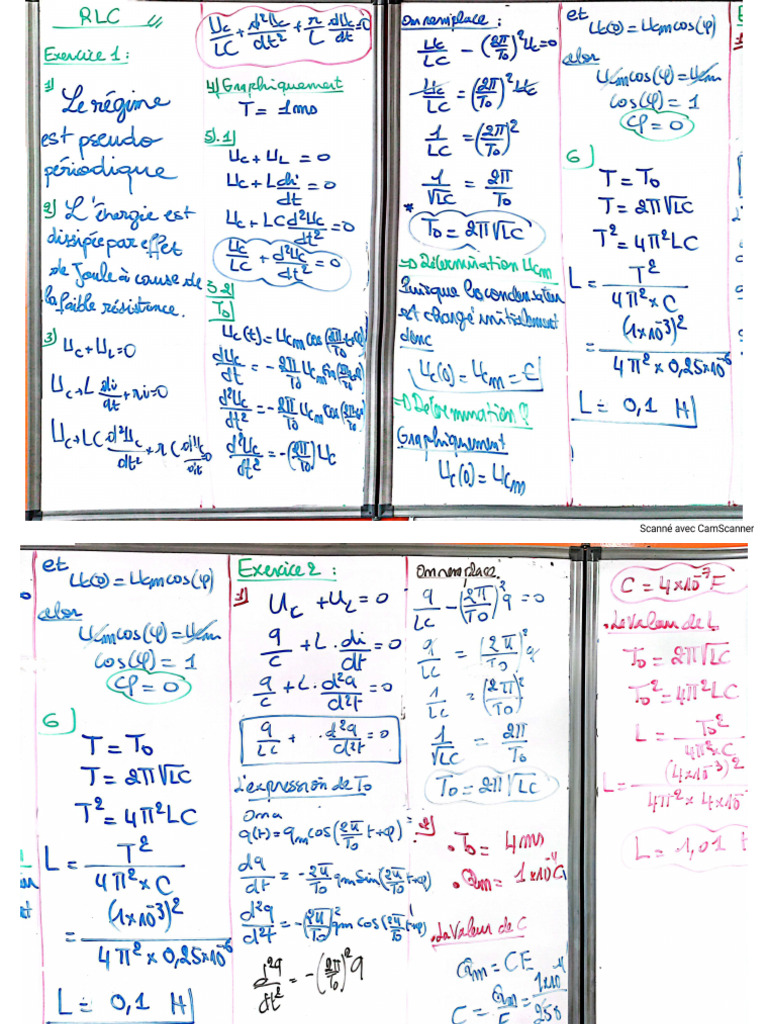 RLC
Exercice 1 :
1)
Le régime
est pseudo
périodique
2) L'énergie est
dissipée par effet
de Joule à cause de
la faible résistance.
3) Uc + UL = 0
Uc + L di/dt + ri = 0
Uc + LC d²Uc/dt² + r C duc/dt = 0
Uc/LC + d²Uc/dt² + r/L dUc/dt = 0
4) Graphiquement
T = 1ms
5).1)
Uc + UL = 0
Uc + L di/dt = 0
Uc + LC d²Uc/dt² = 0
Uc/LC + d²Uc/dt² = 0
5 2)
T0
Uc(t) = Ucm cos(2π/T0 t + φ)
dUc/dt = - 2π/T0 Ucm sin(2π/T0 t + φ)
d²Uc/dt² = - 2π/T0 Ucm cos(2π/T0 t + φ)
d²Uc/dt² = -(2π/T0)² Uc
On remplace :
Uc/LC - (2π/T0)² Uc = 0
Uc/LC = (2π/T0)² Uc
1/LC = (2π/T0)²
1/√LC = 2π/T0
* T0 = 2π√LC
=> Détermination Ucm
Puisque le condensateur
est chargé initialement
donc
Uc(0) = Ucm = E
=> Détermination φ
Graphiquement
Uc(0) = Ucm
et
Uc(0) = Ucm cos(φ)
alor
Ucm cos(φ) = Ucm
cos(φ) = 1
φ = 0
6)
T = T0
T = 2π√LC
T² = 4π²LC
L = T²/4π² × C
= (1×10⁻³)²/4π² × 0,25×10⁻⁶
L = 0,1 H
Scanné avec CamScanner
et
Uc(0) = Ucm cos(φ)
alor
Ucm cos(φ) = Ucm
cos(φ) = 1
φ = 0
6)
T = T0
T = 2π√LC
T² = 4π²LC
L = T²/4π² × C
= (1×10⁻³)²/4π² × 0,25×10⁻⁶
L = 0,1 H
Exercice 2 :
1)
Uc + UL = 0
q/c + L . di/dt = 0
q/c + L . d²q/d²t = 0
q/LC + . d²q/d²t = 0
L'expression de T0
On a
q(t) = qm cos(2π/T0 t + φ)
dq/dt = - 2π/T0 qm sin(2π/T0 t + φ)
d²q/d²t = -(2π/T0)² qm cos(2π/T0 t + φ)
d²q/dt² = -(2π/T0)² q
On remplace.
q/LC - (2π/T0)² q = 0
q/LC = (2π/T0)² q
1/LC = (2π/T0)²
1/√LC = 2π/T0
T0 = 2π√LC
2)
. T0 = 4ms
. Qm = 1×10⁻⁴C
. La Valeur de C
Qm = CE
C = Qm/E = 1×10⁻⁴/250
C = 4×10⁻⁷ F
. La Valeur de L
T0 = 2π√LC
T0² = 4π²LC
L = T0²/4π²×C
L = (4×10⁻³)²/4π² × 4×10
L = 1,01 H